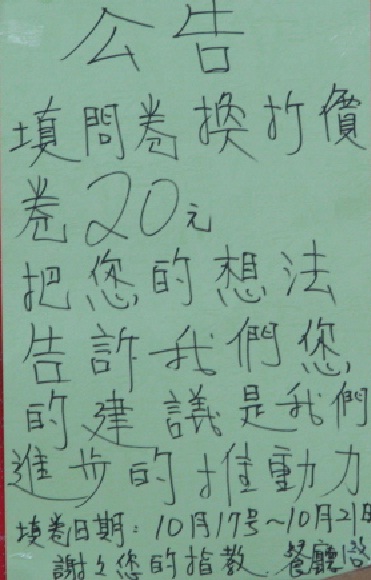 公告
填問卷換折價
卷20元
把您的想法
告訴我們您
的建議是我們
進步的推動力
填卷日期：10月17号~10月21日
謝々您的指教 餐廳啓